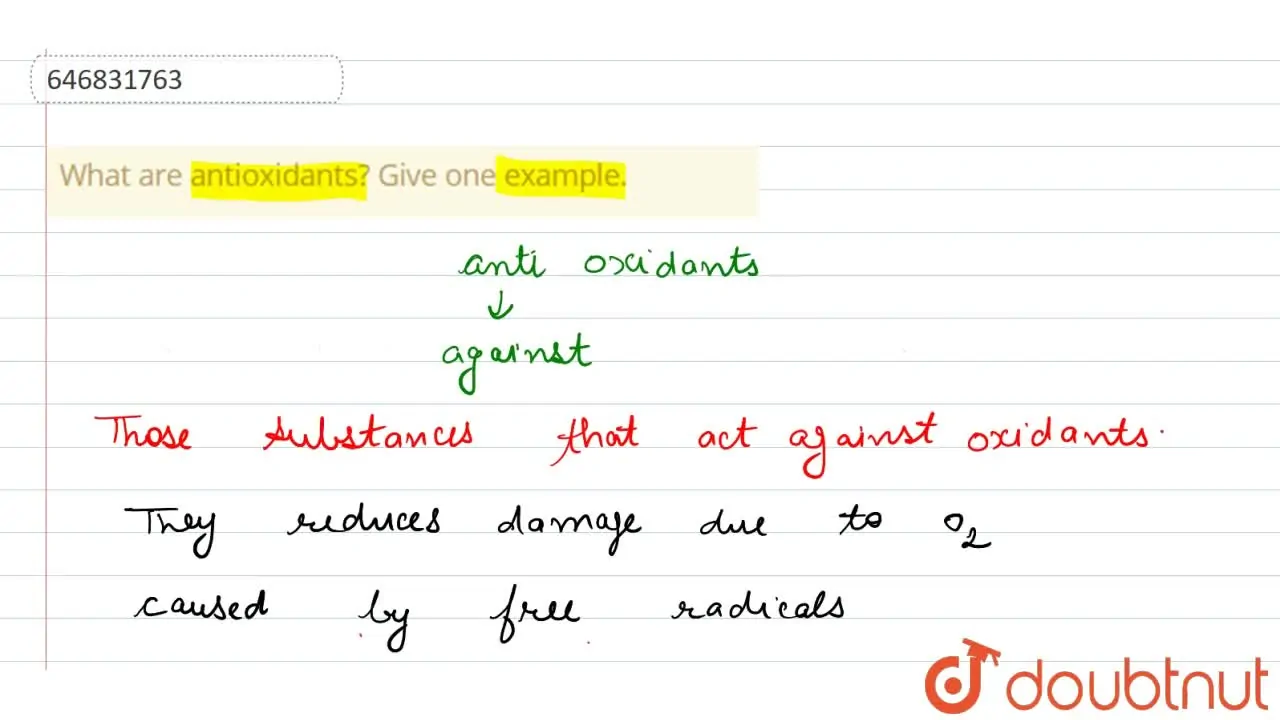 646831763
What are antioxidants? Give one example.
anti oxidants
↓
against
Those substances that act against oxidants.
They reduces damage due to O₂
caused by free radicals
doubtnut